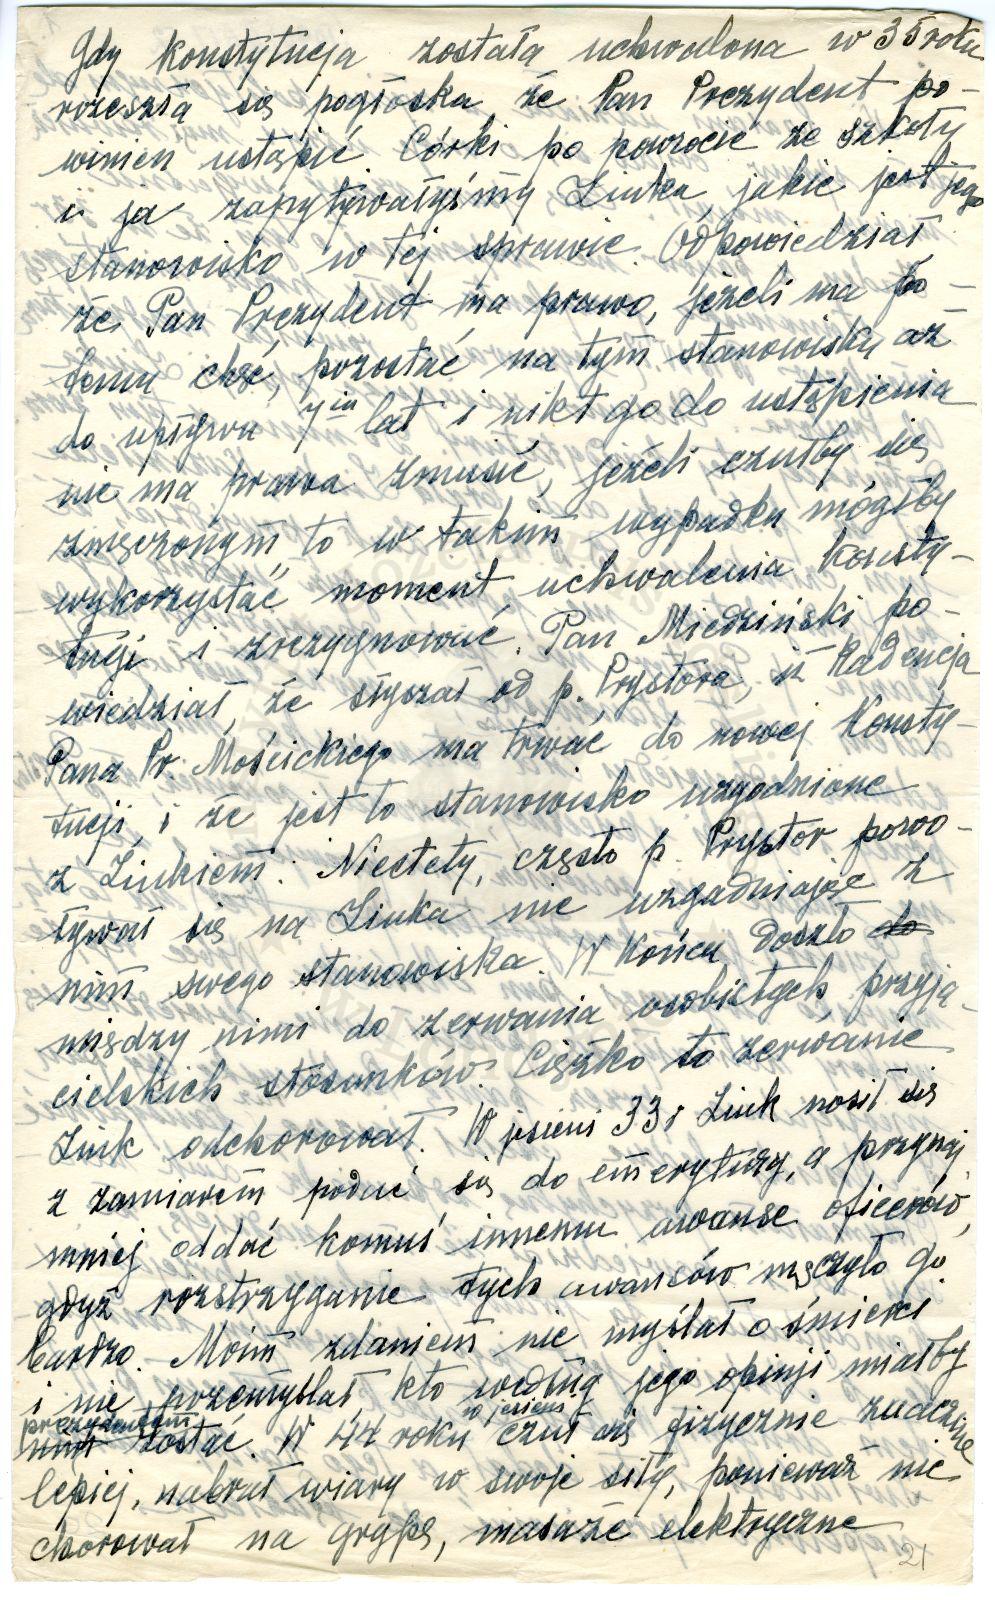 Gdy konstytucja została uchwalona w 35 roku
rozeszła się pogłoska że Pan Prezydent po-
winien ustąpić. Córki po powrocie ze szkoły
i ja zapytywałyśmy Ziuka, jakie jest jego
stanowisko w tej sprawie. Odpowiedział
że Pan Prezydent ma prawo, jeżeli ma po-
temu chęć, pozostać na tym stanowisku aż
do upływu 7iu lat i nikt go do ustąpienia
nie ma prawa zmusić, jeżeli czułby się
zmęczonym to w takim wypadku mógłby
wykorzystać moment uchwalenia konsty-
tucji i zrezygnować. Pan Miedziński po-
wiedział, że słyszał od p. Prystora, iż kadencja
Pana Pr. Mościckiego ma trwać do nowej Konsty-
tucji, i że jest to stanowisko uzgodnione
z Ziukiem. Niestety, często p. Prystor powo-
ływał się na Ziuka nie uzgadniając z
nim swego stanowiska. W końcu doszło do
między nimi do zerwania osobistych, przyja-
cielskich stosunków. Ciężko to zerwanie
Ziuk odchorował. W jesieni 33 r Ziuk nosił się
z zamiarem podać się do emerytury, a przynaj
mniej oddać komuś innemu awanse oficerów,
gdyż rozstrzyganie tych awansów męczyło go
bardzo. Moim zdaniem nie myślał o śmierci
i nie przemyślał, kto według jego opinji miałby
prezydentem w jesieni
nim zostać. W 44 roku czuł się fizycznie znacznie
lepiej, nabrał wiary w swoje siły, ponieważ nie
chorował na grypę, masaże elektryczne
21